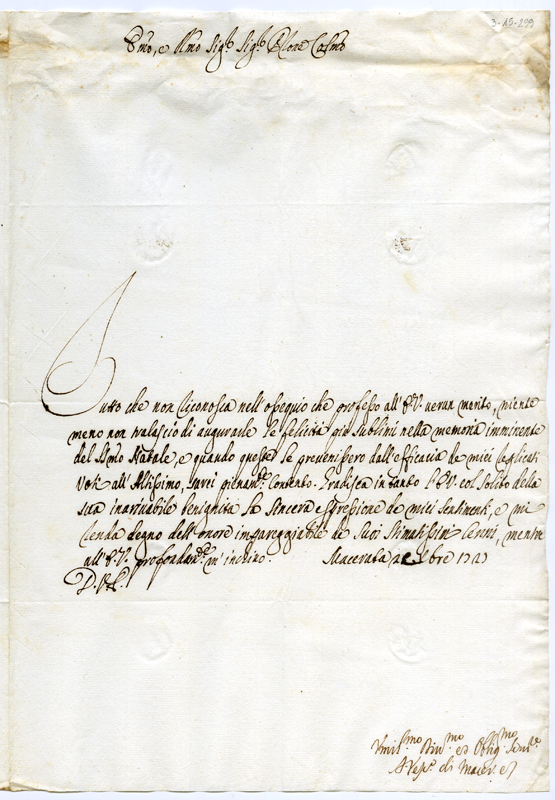 3-A5-299
Emo, e Rmo Sig.r Sig.r Prone Colmo
Tutto che non riconosca nell'ossequio che professo all'E.V. verun merito, niente
meno non tralascio di augurarle le felicità più sublimi nella memoria imminente
del SSmo Natale, e quando queste le provenissero dall'efficacia de miei
Voti all'Altissimo, havrei pienam.te contento. Gradisca in tanto l'E.V. col solito della
sua inarrivabile benignità la sincera espressione de miei sentimenti, e mi
renda degno dell'onore impareggiabile de Suoi Stimatissimi Cenni, mentre
all'E.V. profondam.te m'inchino. Macerata Xbre
D.V.E.
Umil.mo Div.mo et Oblig.mo Serv.e
A Vesc.o di Macer.a